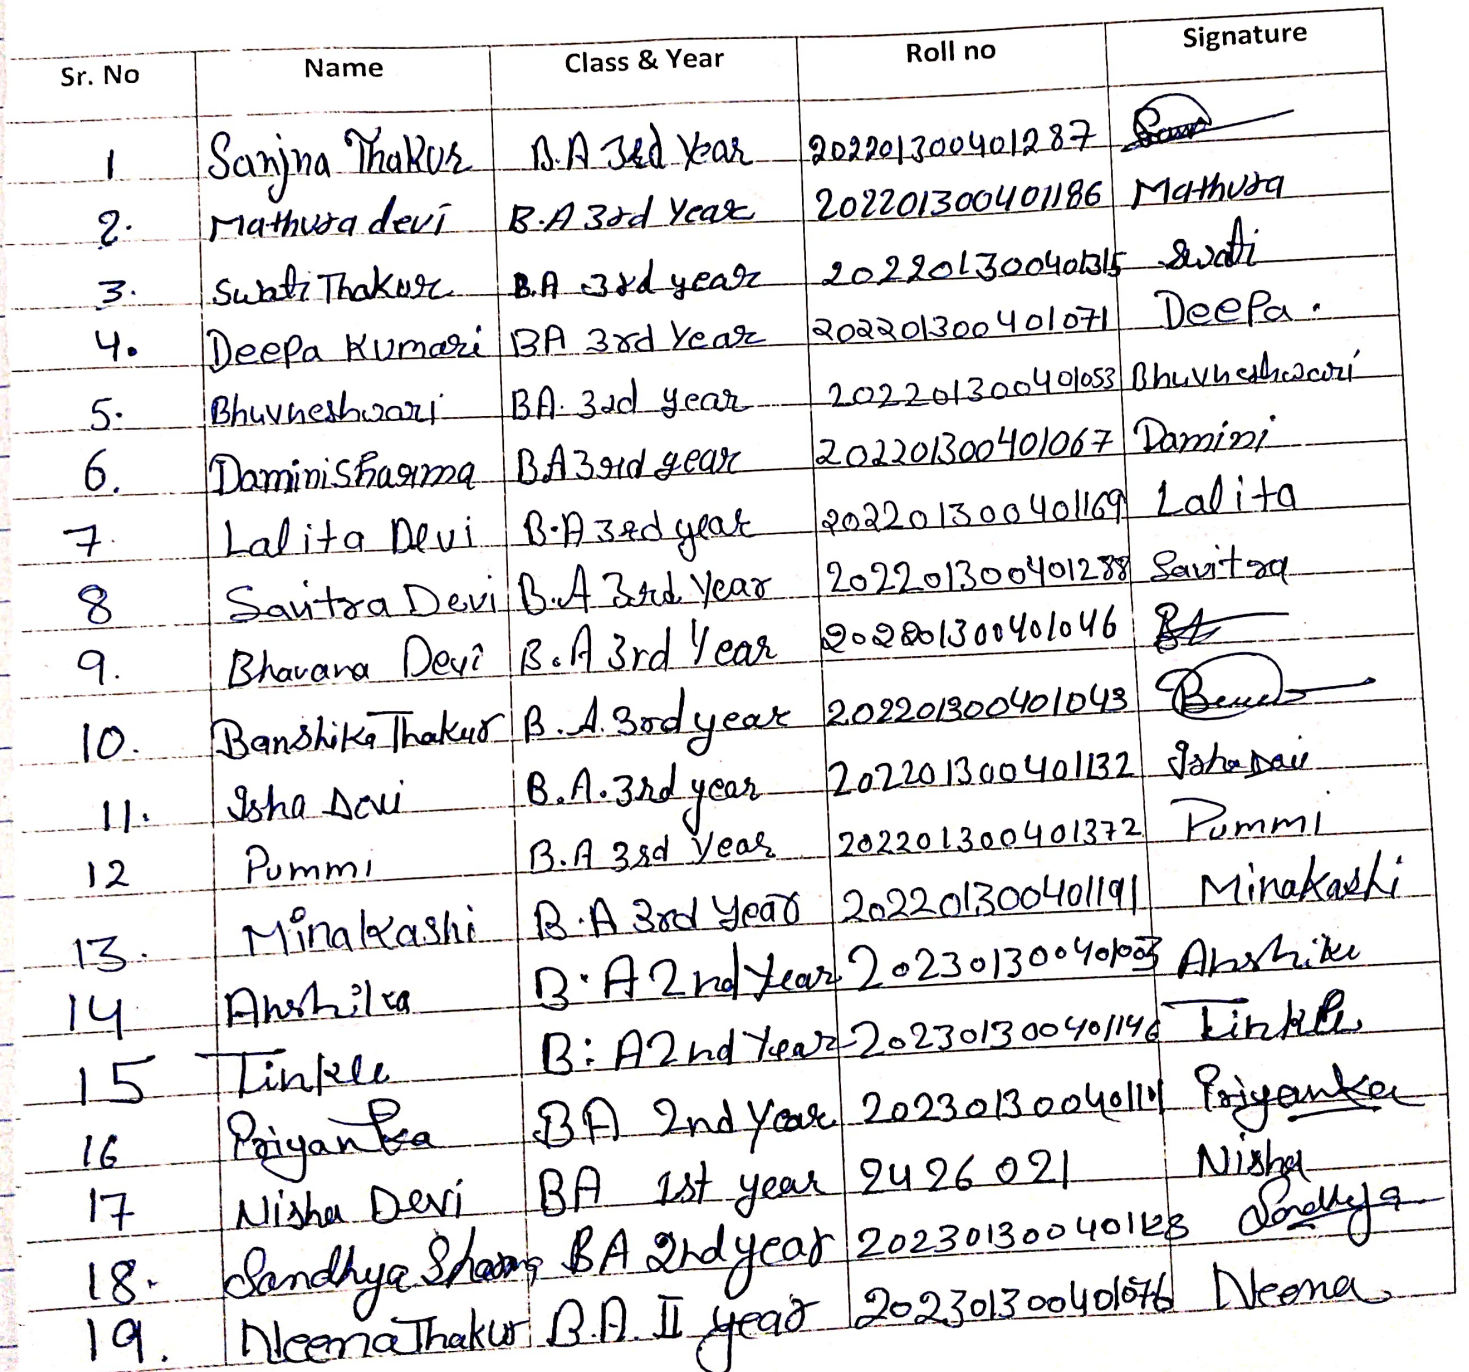 Sr. No Name Class & Year Roll no Signature
1 Sanjna Thakur B.A 3rd Year 202201300401287
2. Mathura devi B.A 3rd Year 202201300401186 Mathura
3. Swati Thakur B.A 3rd year 202201300401315 Swati
4. Deepa Kumari BA 3rd Year 202201300401071 Deepa.
5. Bhuvneshwari BA. 3rd year 202201300401053 Bhuvneshwari
6. Damini Sharma BA 3rd year 202201300401067 Damini
7. Lalita Devi B.A 3rd year 202201300401169 Lalita
8 Savitra Devi B.A 3rd Year 202201300401288 Savitra
9. Bhavana Devi B.A 3rd Year 202201300401046
10. Banshika Thakur B.A. 3rd year 202201300401043
11. Isha Devi B.A. 3rd year 202201300401132 Isha Devi
12 Pummi B.A 3rd Year 202201300401372 Pummi
13. Minakashi B.A 3rd Year 202201300401191 Minakashi
14 Anshika B.A 2nd Year 202301300401003 Anshika
15 Tinkle B:A 2nd Year 202301300401146 Tinkle
16 Priyanka BA 2nd Year Priyanka
17 Nisha Devi BA 1st year 2426021 Nisha
18. Sandhya Sharma BA 2nd year Sandhya
19. Neena Thakur B.A. II year 202301300401076 Neena